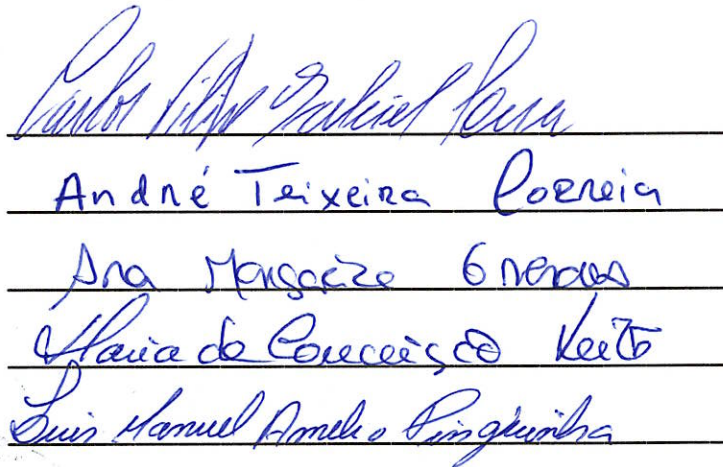 Carlos Filipe Gabriel
André Teixeira Correia
Ana Margarida
Maria da Conceição Leitão
Luis Manuel Amelio Pinguinha